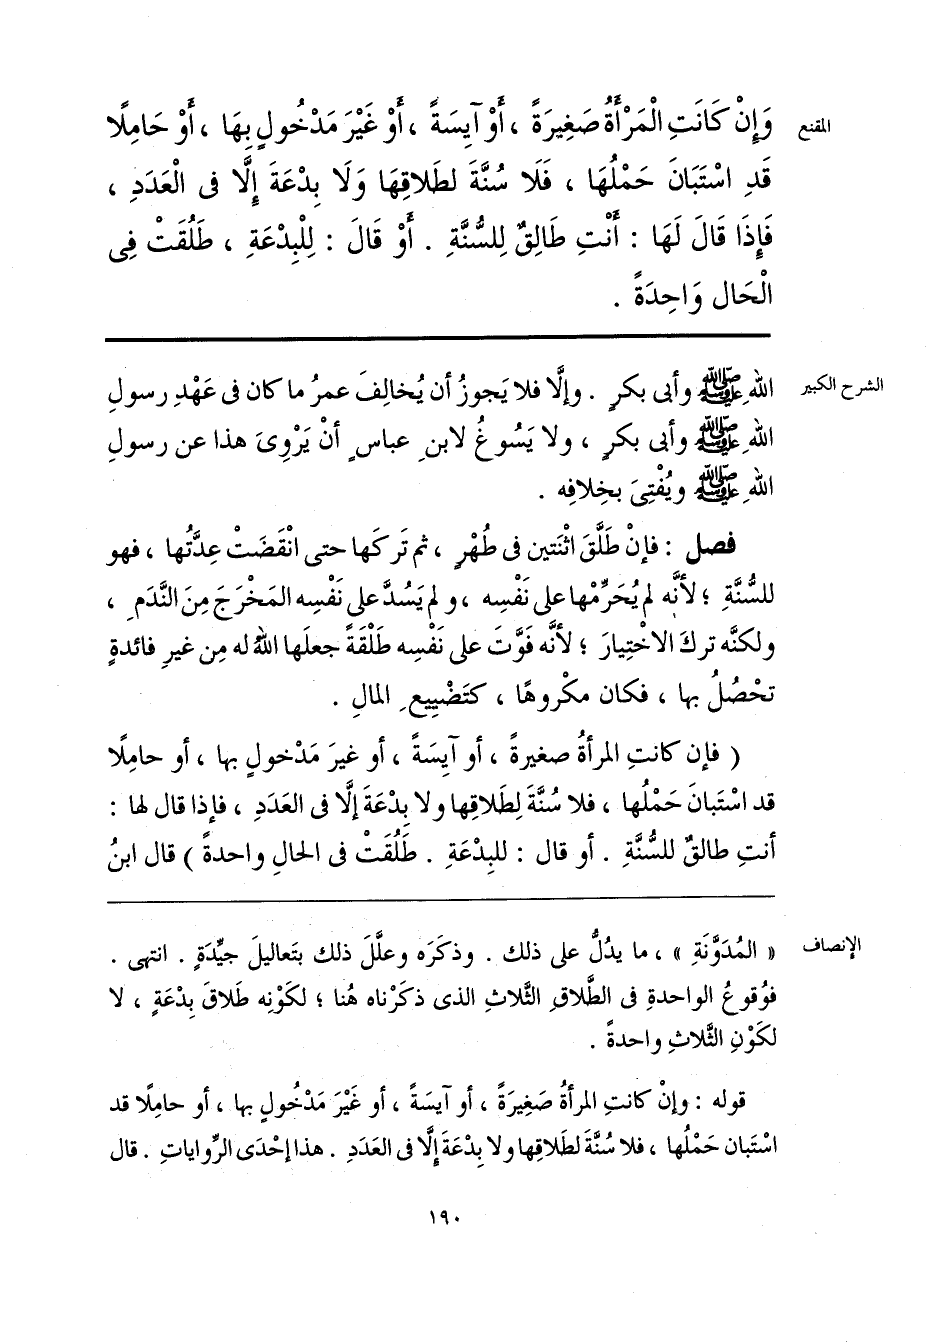 المقنع
وَإِنْ كَانَتِ الْمَرْأَةُ صَغِيرَةً ، أَوْ آيِسَةً ، أَوْ غَيْرَ مَدْخُولٍ بِهَا ، أَوْ حَامِلًا
قَدِ اسْتَبَانَ حَمْلُهَا ، فَلَا سُنَّةَ لطَلاقِهَا وَلَا بِدْعَةَ إِلَّا فى الْعَدَدِ ،
فَإِذَا قَالَ لَهَا : أَنْتِ طَالِقٌ لِلسُّنَّةِ . أَوْ قَالَ : لِلْبِدْعَةِ ، طَلُقَتْ فِى
الْحَال وَاحِدَةً .
الشرح الكبير
اللهِ ﷺ وأبى بكرٍ . وإلَّا فلا يَجوزُ أن يُخالِفَ عمرُ ما كان فى عَهْدِ رسولِ
اللهِ ﷺ وأبى بكرٍ ، ولا يَسُوغُ لابنِ عباسٍ أنْ يَرْوِىَ هذا عن رسولِ
اللهِ ﷺ ويُفْتِىَ بخِلافِه .
فصل : فإنْ طَلَّقَ اثْنَتين فى طُهْرٍ ، ثم تَركَها حتى انْقَضَتْ عِدَّتُها ، فهو
للسُّنَّةِ ؛ لأنَّه لم يُحَرِّمْها على نَفْسِه ، ولم يَسُدَّ على نَفْسِه المَخْرَجَ مِنَ النَّدَمِ ،
ولكنَّه تركَ الاخْتِيارَ ؛ لأنَّه فَوَّتَ على نَفْسِه طَلْقَةً جعلَها اللهُ له مِن غيرِ فائدةٍ
تحْصُلُ بها ، فكان مكْروهًا ، كتَضْيِيعِ المالِ .
( فإن كانتِ المرأةُ صغيرةً ، أو آيِسَةً ، أو غيرَ مَدْخولٍ بها ، أو حاملًا
قد اسْتَبانَ حَمْلُها ، فلا سُنَّةَ لِطَلاقِها ولا بِدْعَةَ إلَّا فى العَدَدِ ، فإذا قال لها :
أنتِ طالقٌ للسُّنَّةِ . أو قال : للبِدْعَةِ . طَلُقَتْ فى الحالِ واحدةً ) قال ابنُ
الإنصاف
« المُدَوَّنَةِ » ، ما يدُلُّ على ذلك . وذكَرَه وعلَّلَ ذلك بتَعاليلَ جيِّدَةٍ . انتهى .
فوُقوعُ الواحدةِ فى الطَّلاقِ الثَّلاثِ الذى ذكَرْناه هُنا ؛ لكَوْنِه طَلاقَ بِدْعَةٍ ، لا
لكَوْنِ الثَّلاثِ واحدةً .
قوله : وإنْ كانتِ المرأةُ صَغِيرَةً ، أو آيِسَةً ، أو غَيْرَ مَدْخُولٍ بها ، أو حامِلًا قد
اسْتَبان حَمْلُها ، فلا سُنَّةَ لطَلاقِها ولا بِدْعَةَ إلَّا فى العَدَدِ . هذا إحْدَى الرِّواياتِ . قال
١٩٠